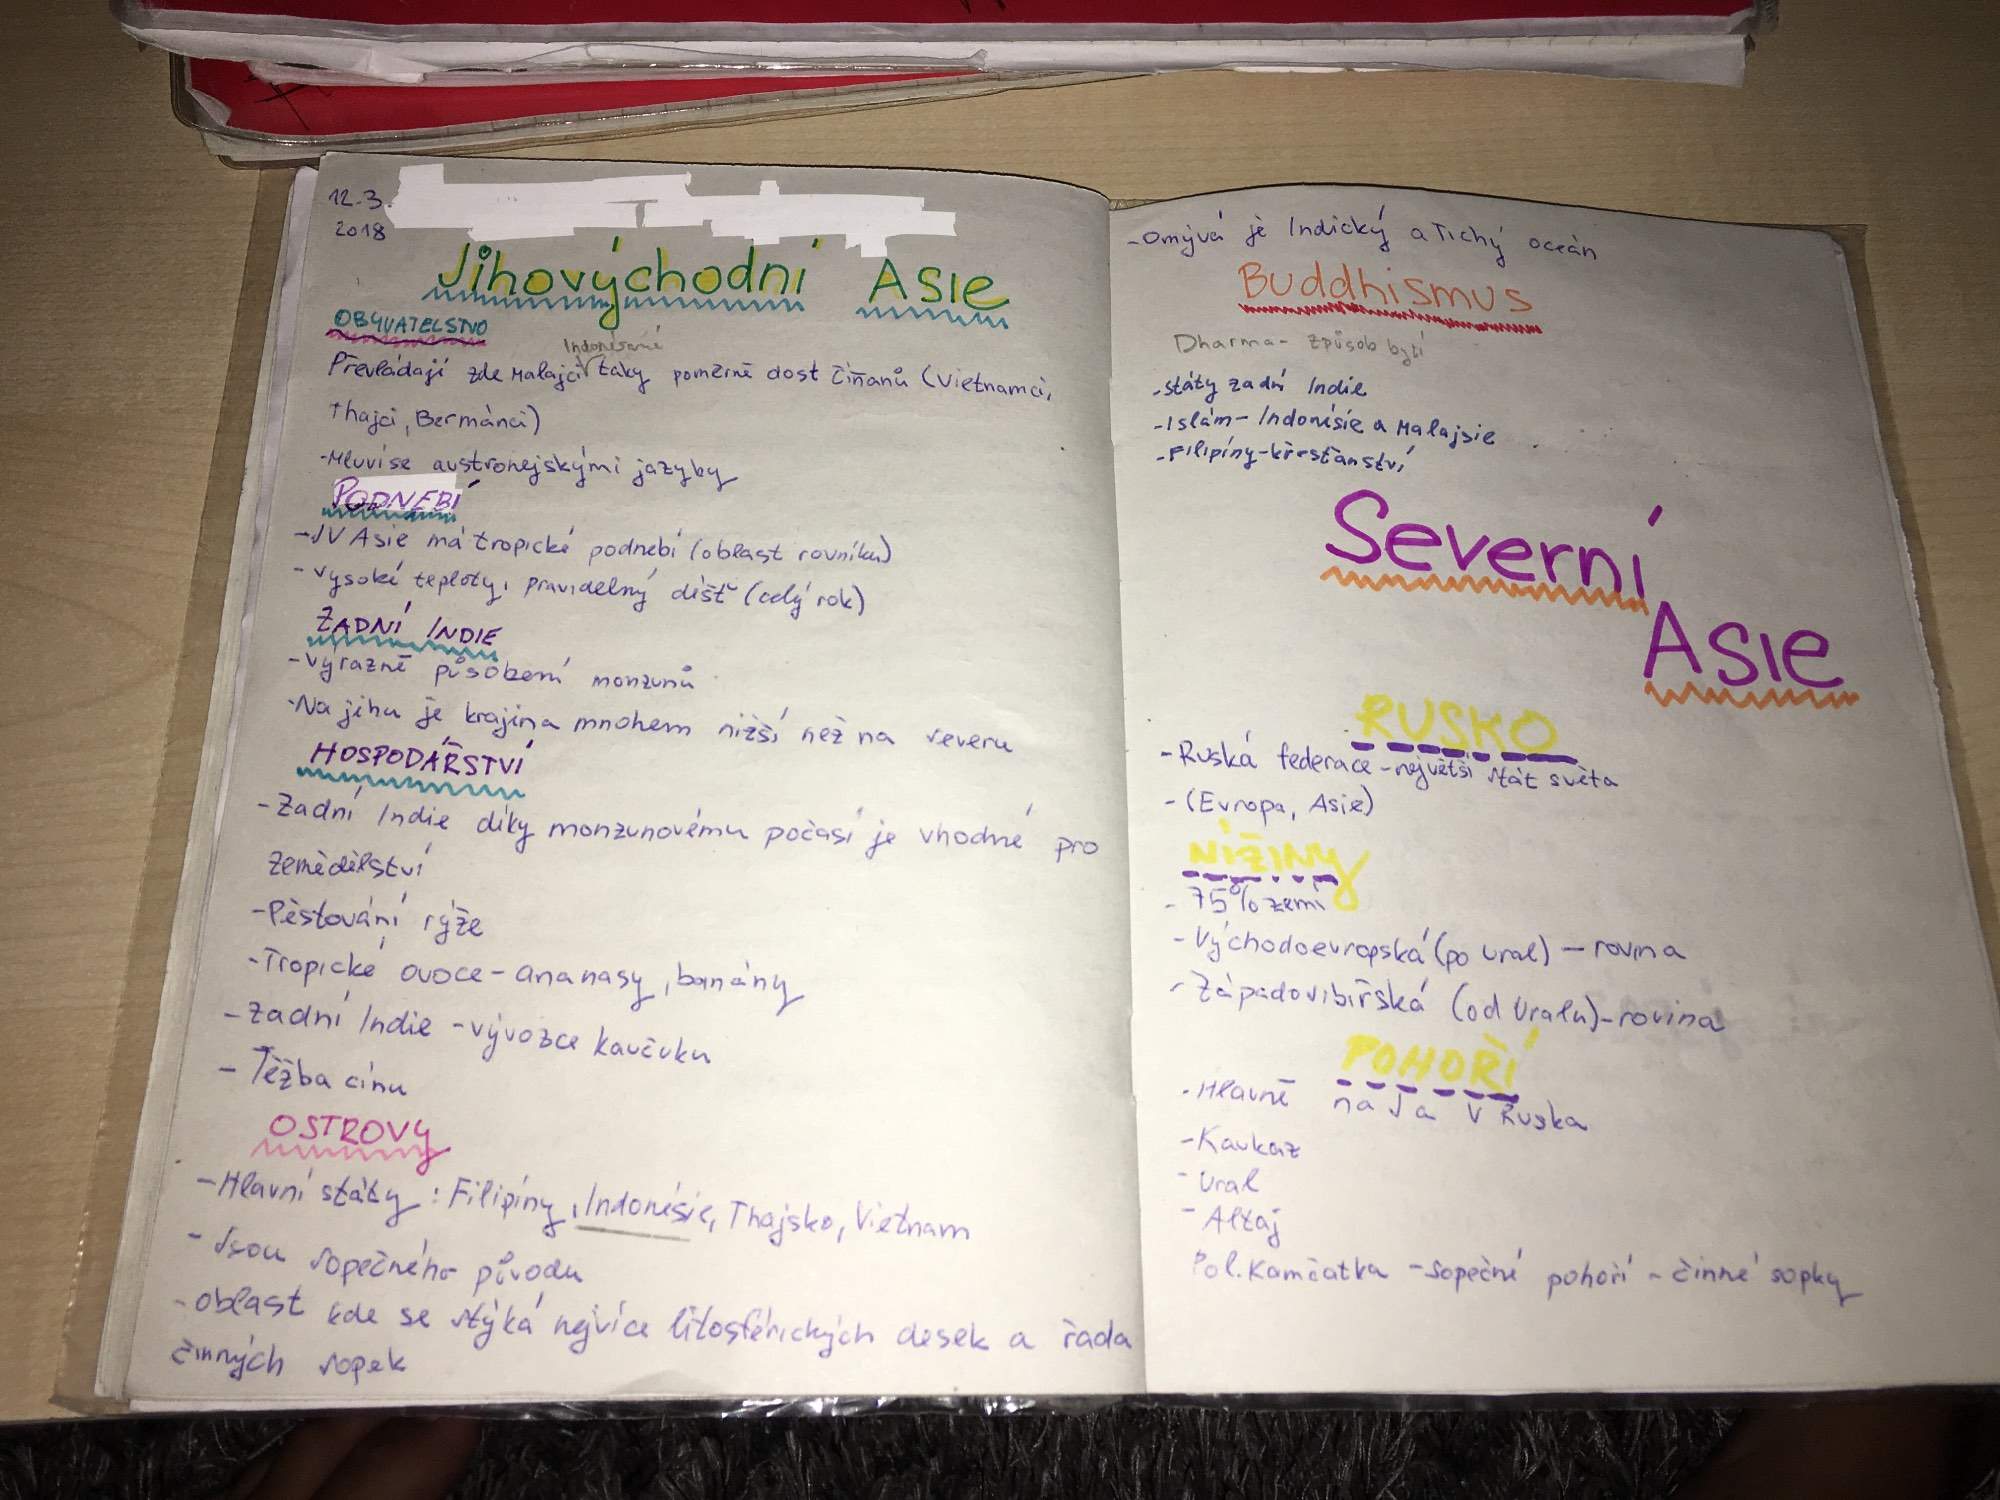 12.3.
2018
Jihovýchodní Asie
OBYVATELSTVO
Indonésané
Převládají zde Malajci taky poměrně dost číňanů (Vietnamci,
Thajci, Bermánci)
-Mluví se austronejskými jazyby
PODNEBÍ
-JV Asie má tropické podnebí (oblast rovníku)
-vysoké teploty, pravidelný déšť (celý rok)
ZADNÍ INDIE
-Výrazné působení monzunů
-Na jihu je krajina mnohem nižší než na severu
HOSPODÁŘSTVÍ
-Zadní Indie díky monzunovému počasí je vhodné pro
zemědělství
-Pěstování rýže
-Tropické ovoce-ananasy, banány
-Zadní Indie -vývozce kaučuku
-Těžba cínu
OSTROVY
-Hlavní státy: Filipíny, Indonésie, Thajsko, Vietnam
-Jsou sopečného původu
-oblast kde se stýká nejvíce litosférických desek a řada
činných sopek
-Omývá je Indický a Tichý oceán
Buddhismus
Dharma- způsob bytí
-státy zadní Indie
-Islám-Indonésie a Malajsie
-Filipíny-křesťanství
Severní
Asie
RUSKO
-Ruská federace -největší stát světa
-(Evropa, Asie)
NÍŽINY
-75% zemí
-Východoevropská (po Ural) - rovina
-Západovibiřská (od Uralu)-rovina
POHOŘÍ
-Hlavně na J a V Ruska
-Kavkaz
-Ural
-Altaj
Pol. Kamčatka -sopečné pohoří - činné sopky